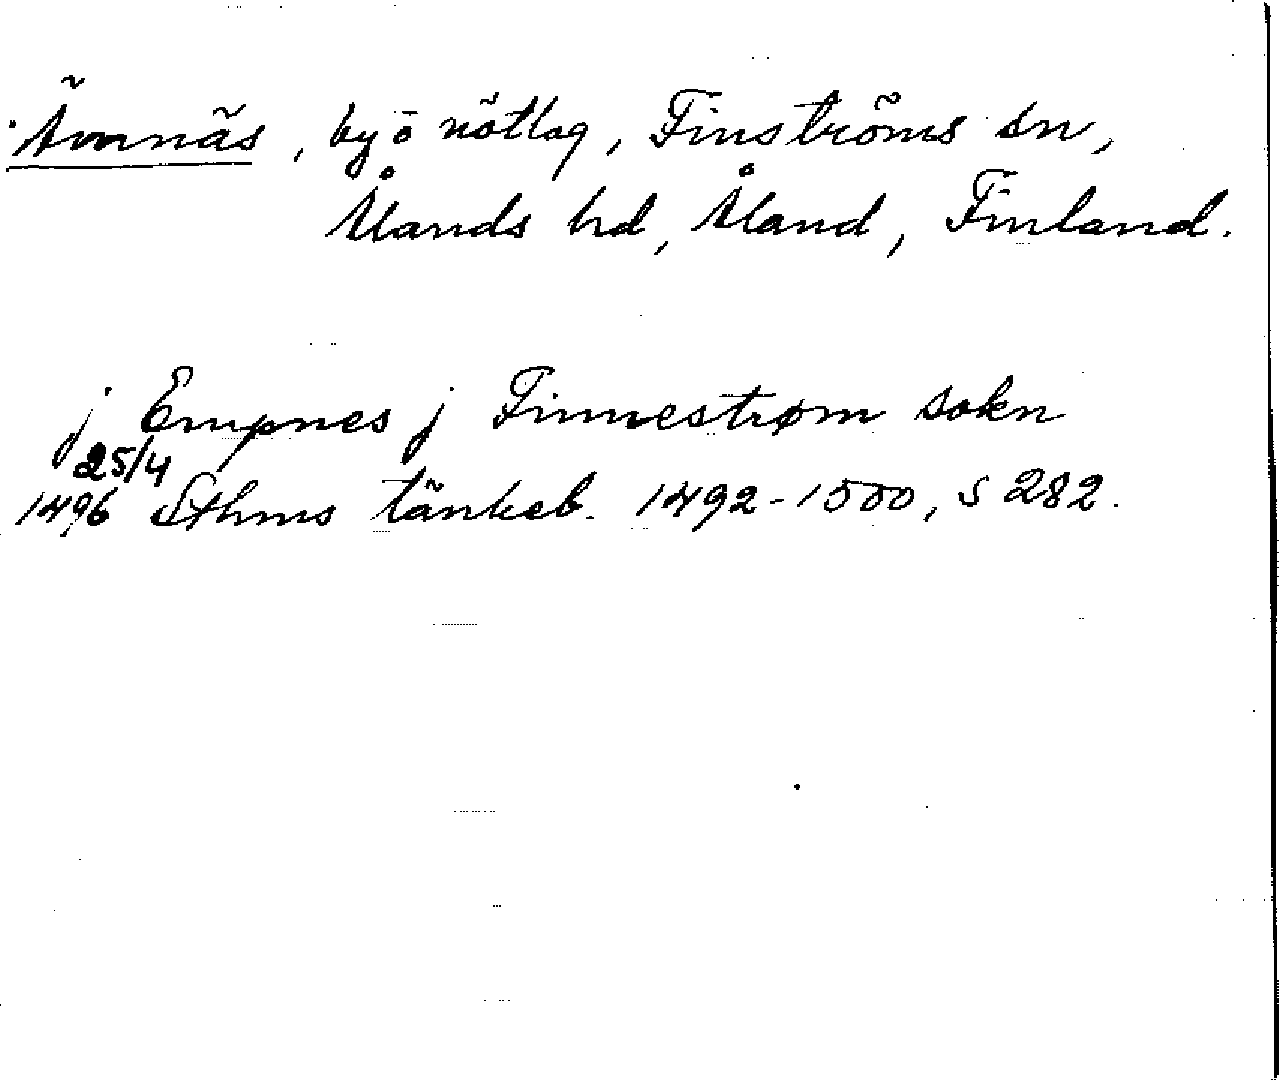 Ämnäs, by o nötlag, Finströms sn,
Ålands hd, Åland, Finland.
j Empnes j Finnestrøm sokn
25/4
1496 Sthms tänkeb. 1492-1500, s 282.